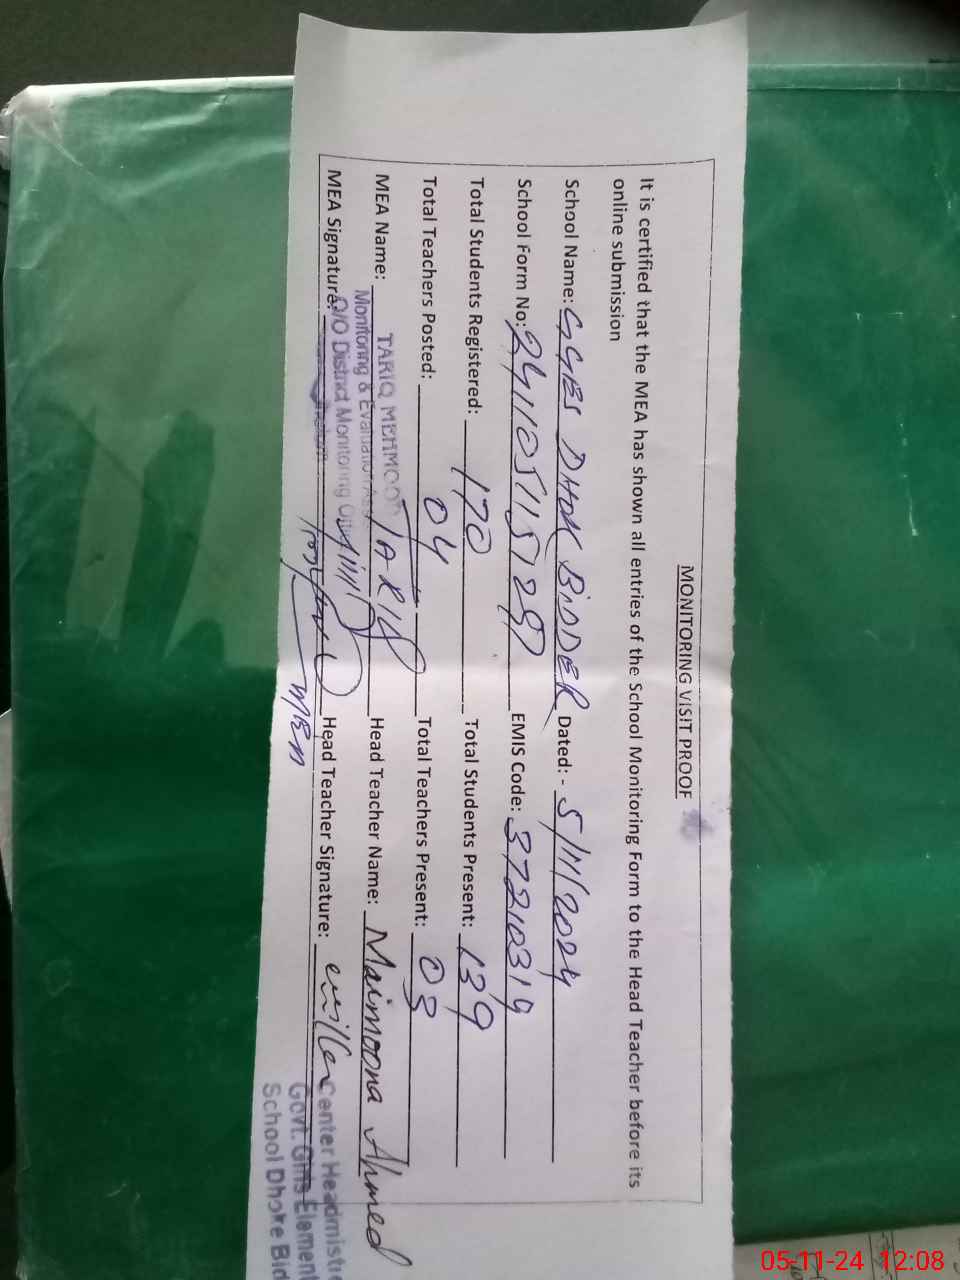 MONITORING VISIT PROOF
It is certified that the MEA has shown all entries of the School Monitoring Form to the Head Teacher before its
online submission
School Name: GGES DHOK BIDDER Dated: - 5/11/2024
School Form No: EMIS Code: 37210319
Total Students Registered: 170 Total Students Present: 139
Total Teachers Posted: 04 Total Teachers Present: 03
MEA Name: TARIQ Head Teacher Name: Maimoona Ahmed
TARIQ MEHMOOD
Monitoring & Evaluation
O/O District Monitoring
MEA Signature: Head Teacher Signature:
MEA
Center Headmist
Govt. Girls Element
School Dhoke Bid
05-11-24 12:08